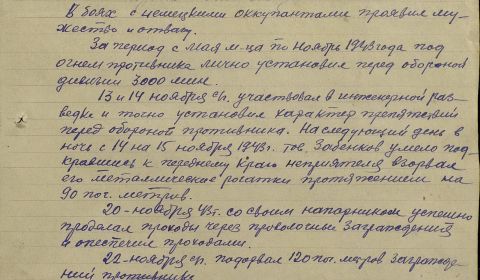 В боях с немецкими оккупантами проявил му-
жество и отвагу.
За период с мая м-ца по ноября 1943 года под
огнем противника лично установил перед обороной
дивизии 3000 мин.
13 и 14 ноября с/г. участвовал в инженерной раз-
ведке и точно установил характер препятствий
перед обороной противника. На следующий день в
ночь с 14 на 15 ноября 1943г. тов. Забенков умело под
кравшись к переднему краю неприятеля взорвал
его металлические рогатки протяжением на
90 пог. метров.
20-ноября 43г. со своим напарником успешно
проделал проходы через проволочные заграждения
и обеспечил проходами.
22-ноября с/г. подорвал 120 пог. метров загражде-
ний противника